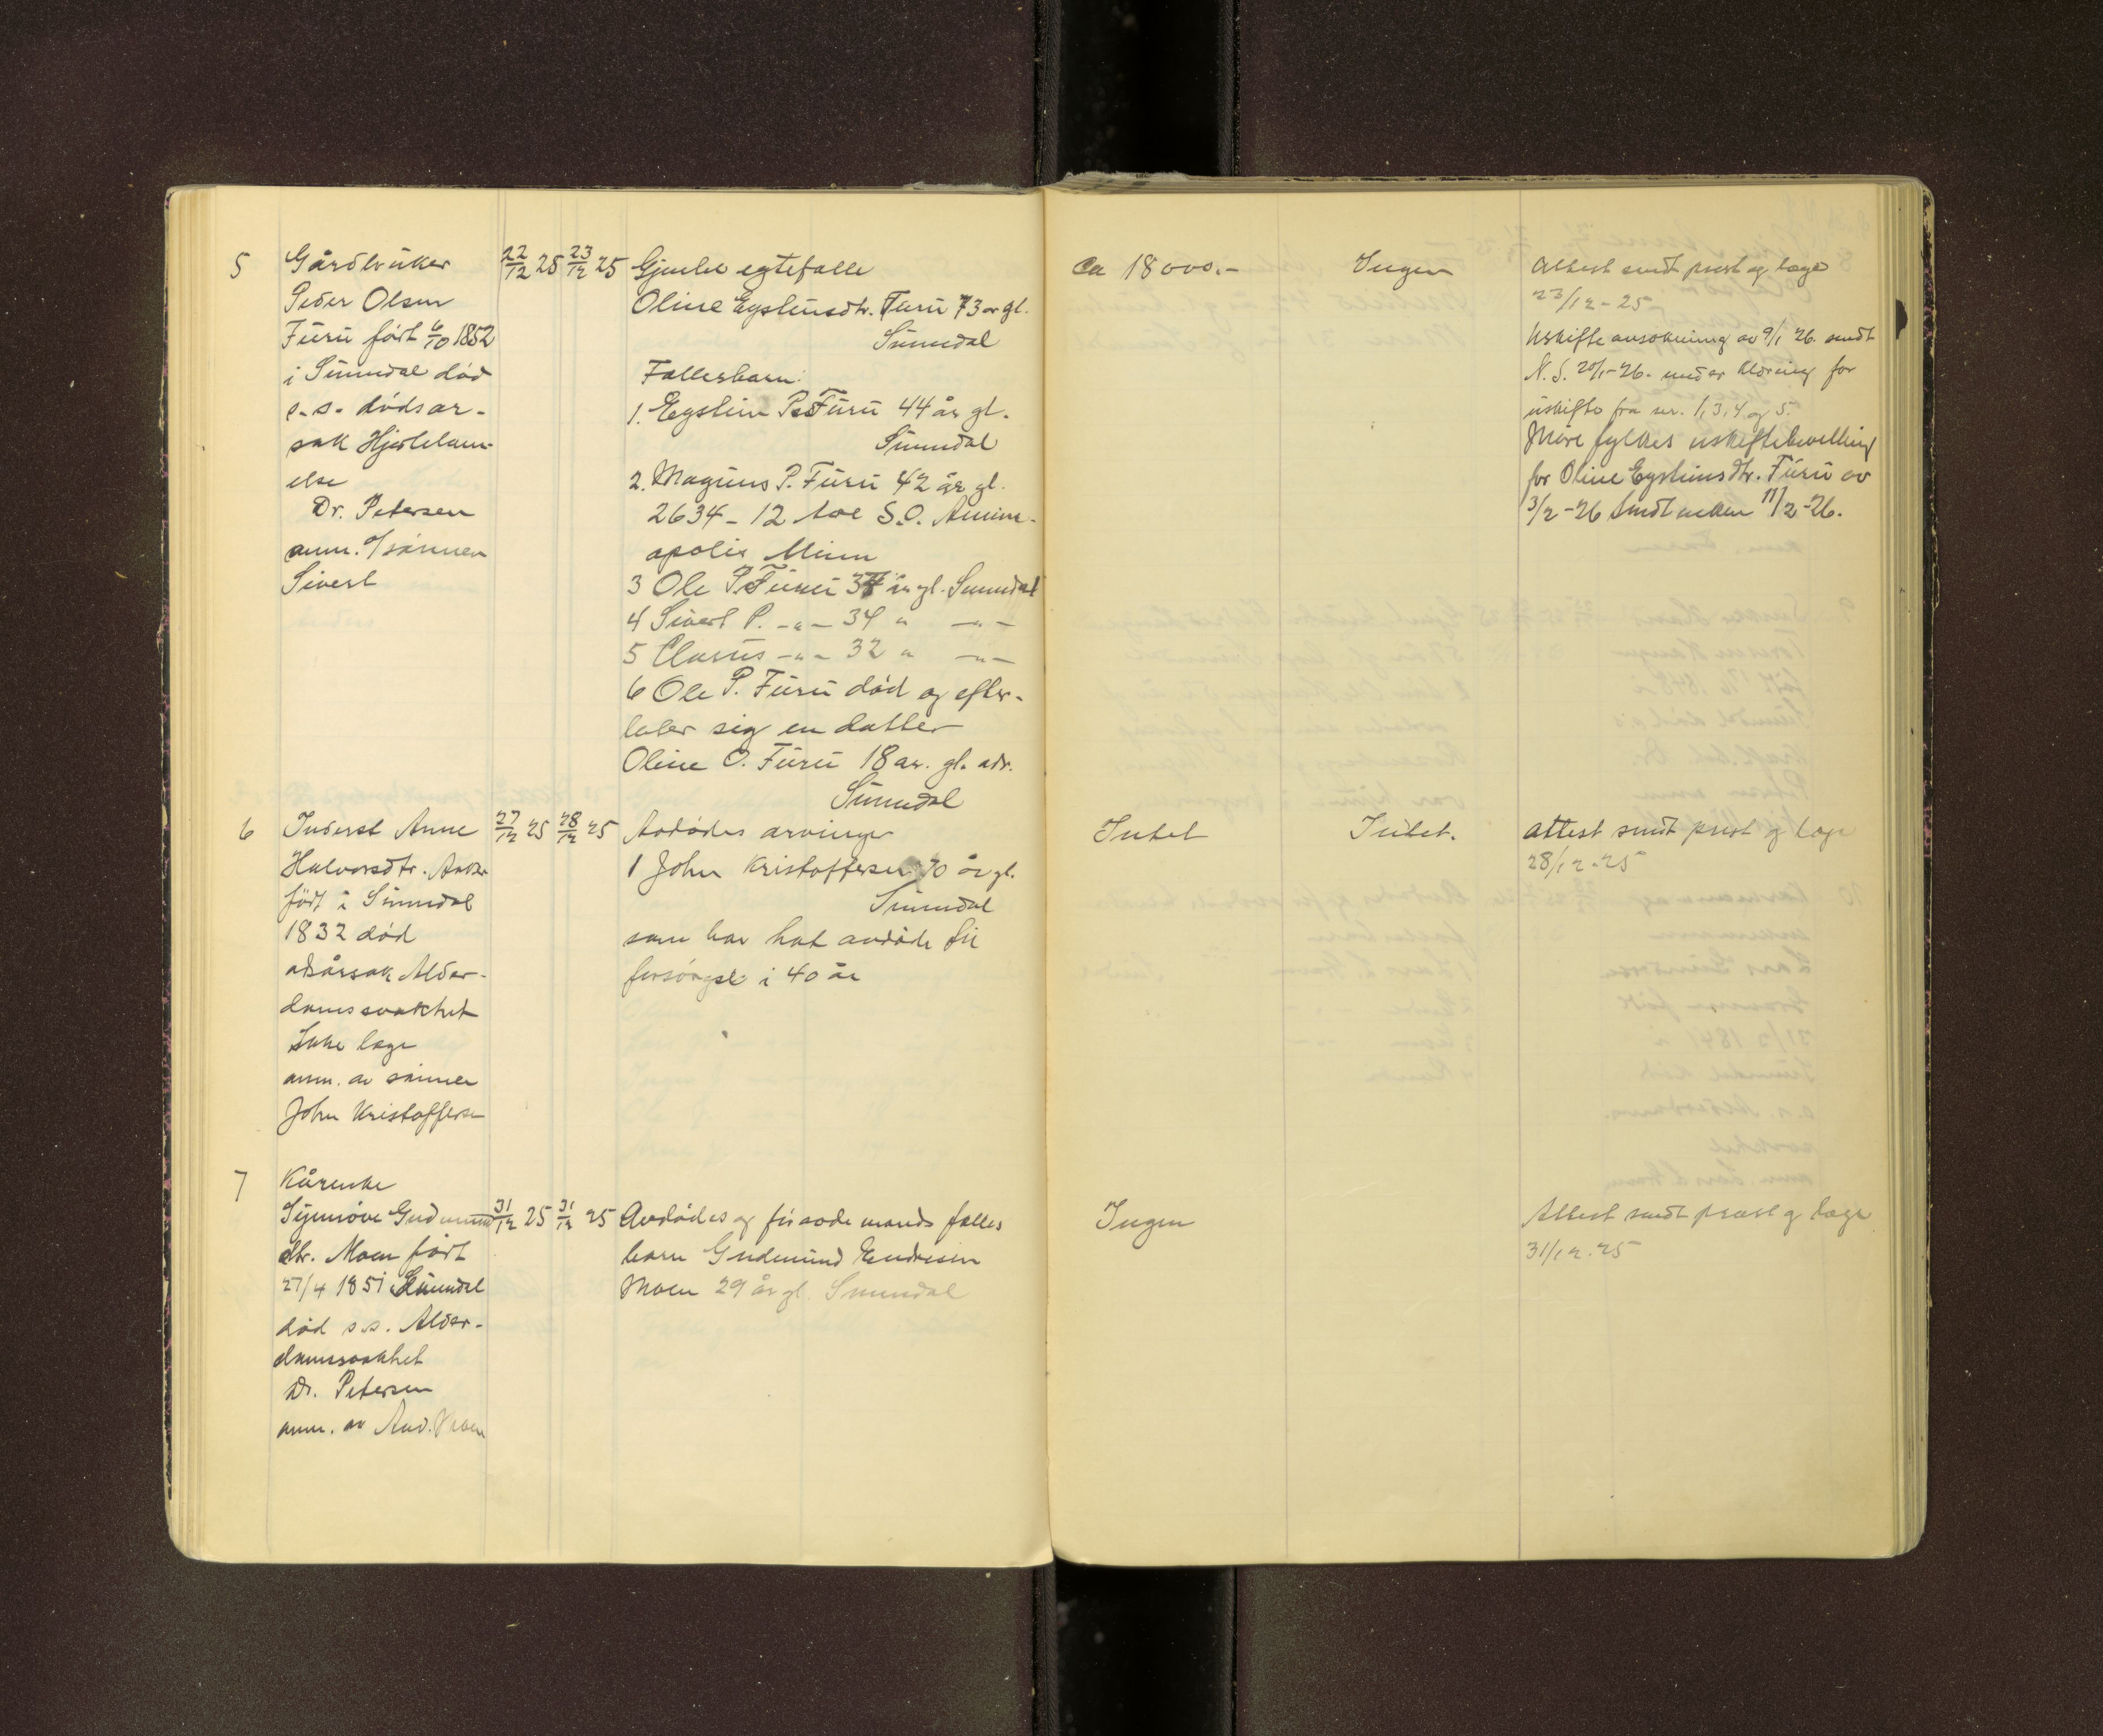 5
Gårdbruker
Peder Olsen
Furu født 6/10 1852
i Sunndal død
s. s. dødsar-
sak Hjertelam-
else
Dr. Petersen
anm. a/ sönnen
Sivert
22/12 25 23/12 25
Gjenlev egtefælle
Oline Eysteinsdtr. Furu 73 år gl.
Sunndal
Fællesbarn:
1. Eystein P. Furu 44 år gl.
Sunndal
2. Magnus P. Furu 42 år gl.
2634 - 12 Ave S.O.
apolis Minn
3 Ole P. Furu år gl. Sunndal
4 Sivert P. -„- 34 „ -„-
5 Clarus -„- 32 „ -„-
6 Ole P. Furu død og efter-
later sig en datter
Oline O. Furu 18 år. gl. adr.
Sunndal
Ca 18000.-
Ingen
Attest sendt prest og læge
23/12 - 25
Uskifte ansökning av 9/1 26. sendt
N. S. 20/1-26. med erklæring for
uskifte fra nr. 1, 3, 4 og 5.
Möre fylkes uskiftebevilling
for Oline Eysteinsdtr. Furu av
3/2 -26 sendt enken 11/2 -26.
6
Inderst Anne
Halvorsdtr.
født i Sunndal
1832 død
Alder-
domssvakhet
Ikke læge
anm. av sönnen
John Kristoffersen
27/12 25 28/12 25
Avdødes arvinger
1 John Kristoffersen 70 år gl.
Sunndal
som har hat avdøde til
forsørgelse i 40 år
Intet
Intet.
Attest sendt prest og læge
28/12.25
7
Kårenke
Synnöve Gudmund
dtr. Moen født
27/4 1851 Sunndal
død s.s. Alder-
domssvakhet
Dr. Petersen
anm. av And. Moen
31/12 25 31/12 25
Avdødes og før avdøde mands fælles
barn Gudmund Endresen
Moen 29 år gl. Sunndal
Ingen
Attest sendt prest og læge
31/12.25